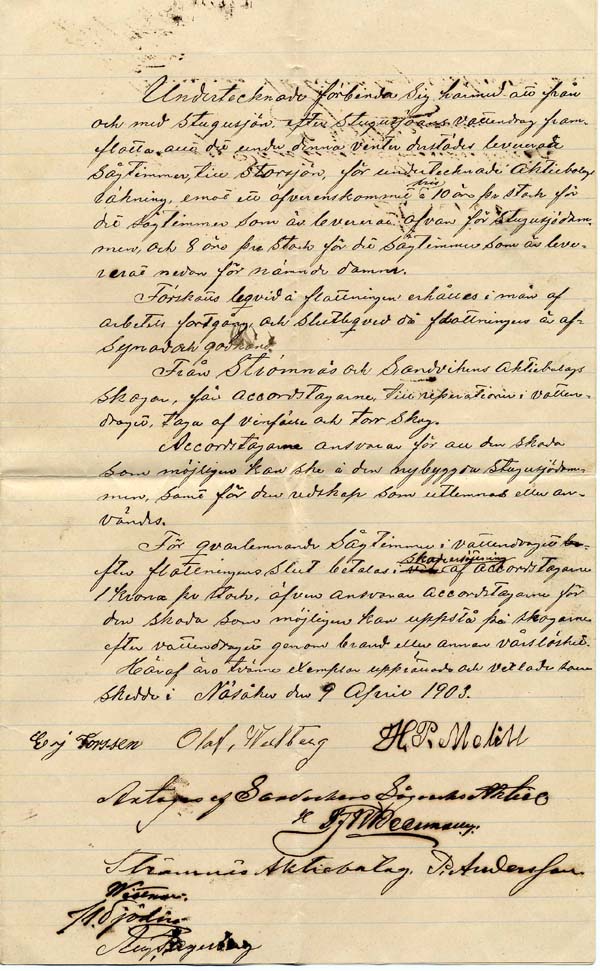 Undertecknade förbinda sig härmed att från
och med Stugusjön, efter Stugusjöåns vattendrag fram-
flotta allt det under denna vinter derstädes levererade
Sågtimmer, till Storsjön, för undertecknade Aktiebolags
räkning, emot ett öfverenskommit pris å 10 öre pr stock för
det sågtimmer som är levererat ofvan för Stugusjödam-
men, och 8 öre pr stock för det sågtimmer som är leve-
rerat nedan för nämnde damm.
Förskotts leqvid å flottningen erhålles i mån af
arbetets fortgång och slutleqvid då flottningen är af-
synad och godkänd.
Från Strömnäs och Sandvikens Aktiebolags
skogar, får accordstagarne, till reperationer i vatten-
draget, taga af vindfälle och torr skog.
Accordstagarne ansvarar för all den skada
som möjligen kan ske å den nybyggda Stugusjödam-
men, samt för den redskap som utlemnas eller an-
vändes.
För qvarlemnande Sågtimmer i vattendraget
efter flottningens slut betalas i skadeersättning af accordstagarne
1 krona pr stock, äfven ansvarar accordstagarne för
den skada som möjligen kan uppstå på skogarne
efter vattendraget genom brand eller annan vårslöshet.
Häraf äro tvänne exemplar upprättade och vexlade som
skedde i Näsåker den 9 April 1903.
Erj Forssen Olof Wedberg H. P. Molill
Antages af Sandvikens Sågverks Aktieb
Strömnäs Aktiebolag. P. Andersson
Wittnar.